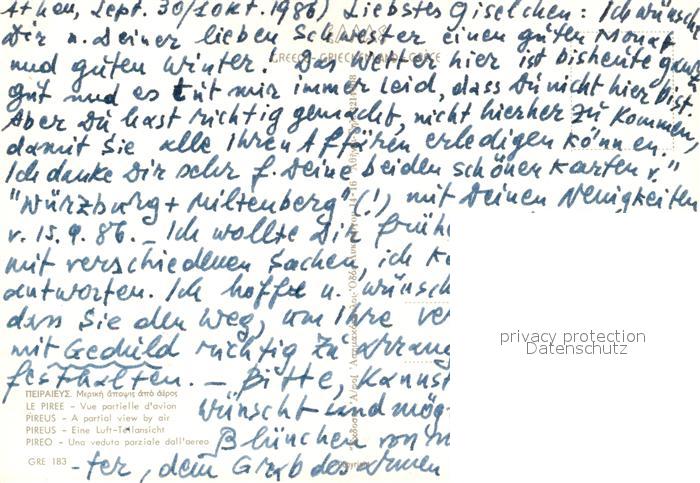 Athen, Sept. 30/1 Okt. 1986) Liebstes Giselchen: Ich wünsche
Dir u. Deiner lieben Schwester einen guten Monat
und guten Winter! Das Wetter hier ist bisheute ganz
gut und es tut mir immer leid, dass Du nicht hier bist.
Aber Du hast richtig gemacht, nicht hierher zu kommen,
damit Sie alle Ihren Affären erledigen können.
Ich danke Dir sehr f. Deine beiden schönen Karten v."
"Würzburg + Miltenberg" (!) mit Deinen Neuigkeiten
v. 15.9.86. – Ich wollte Dir früh
mit verschiedenen Sachen, ich k
antworten. Ich hoffe u. wünsch
dass Sie den Weg, um Ihre ve
mit Geduld richtig zu arrang
festhalten. – Bitte, kannst
ΠΕΙΡΑΙΕΥΣ. Μερική ἄποψις ἀπό ἀέρος
LE PIREE – Vue partielle d'avion
wünscht und mög
PIREUS – A partial view by air
PIREUS – Eine Luft-Teilansicht
PIREO – Una veduta parziale dall'aereo
Blümchen von
GRE 183
-ter, dem Grab des armen
GREECE
privacy protection
Datenschutz